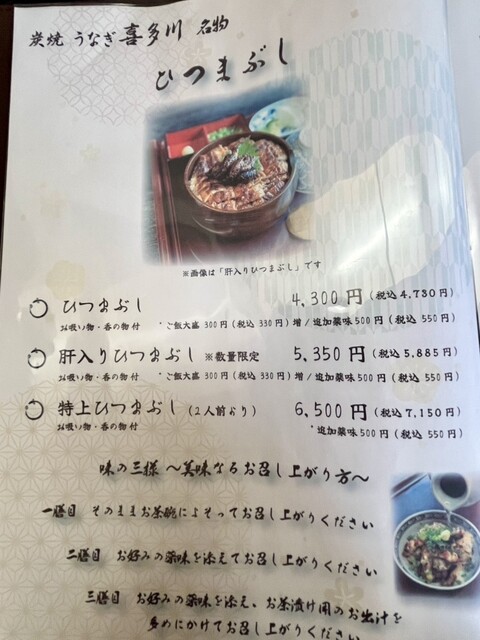 炭焼 うなぎ 喜多川 名物
ひつまぶし
※画像は「肝入りひつまぶし」です
ひつまぶし 4,300円(税込4,730円)
お吸い物・香の物付 *ご飯大盛 300円(税込 330円)増/追加薬味500円(税込 550円)
肝入りひつまぶし ※数量限定 5,350円(税込5,885円)
お吸い物・香の物付 *ご飯大盛 300円(税込 330円)増/追加薬味500円(税込 550円)
特上ひつまぶし(2人前より) 6,500円(税込7,150円)
お吸い物・香の物付 *追加薬味500円(税込 550円)
味の三様 〜美味なるお召し上がり方〜
一膳目 そのままお茶碗によそってお召し上がりください
二膳目 お好みの薬味を添えてお召し上がりください
三膳目 お好みの薬味を添え、お茶漬け用のお出汁を
多めにかけてお召し上がりください